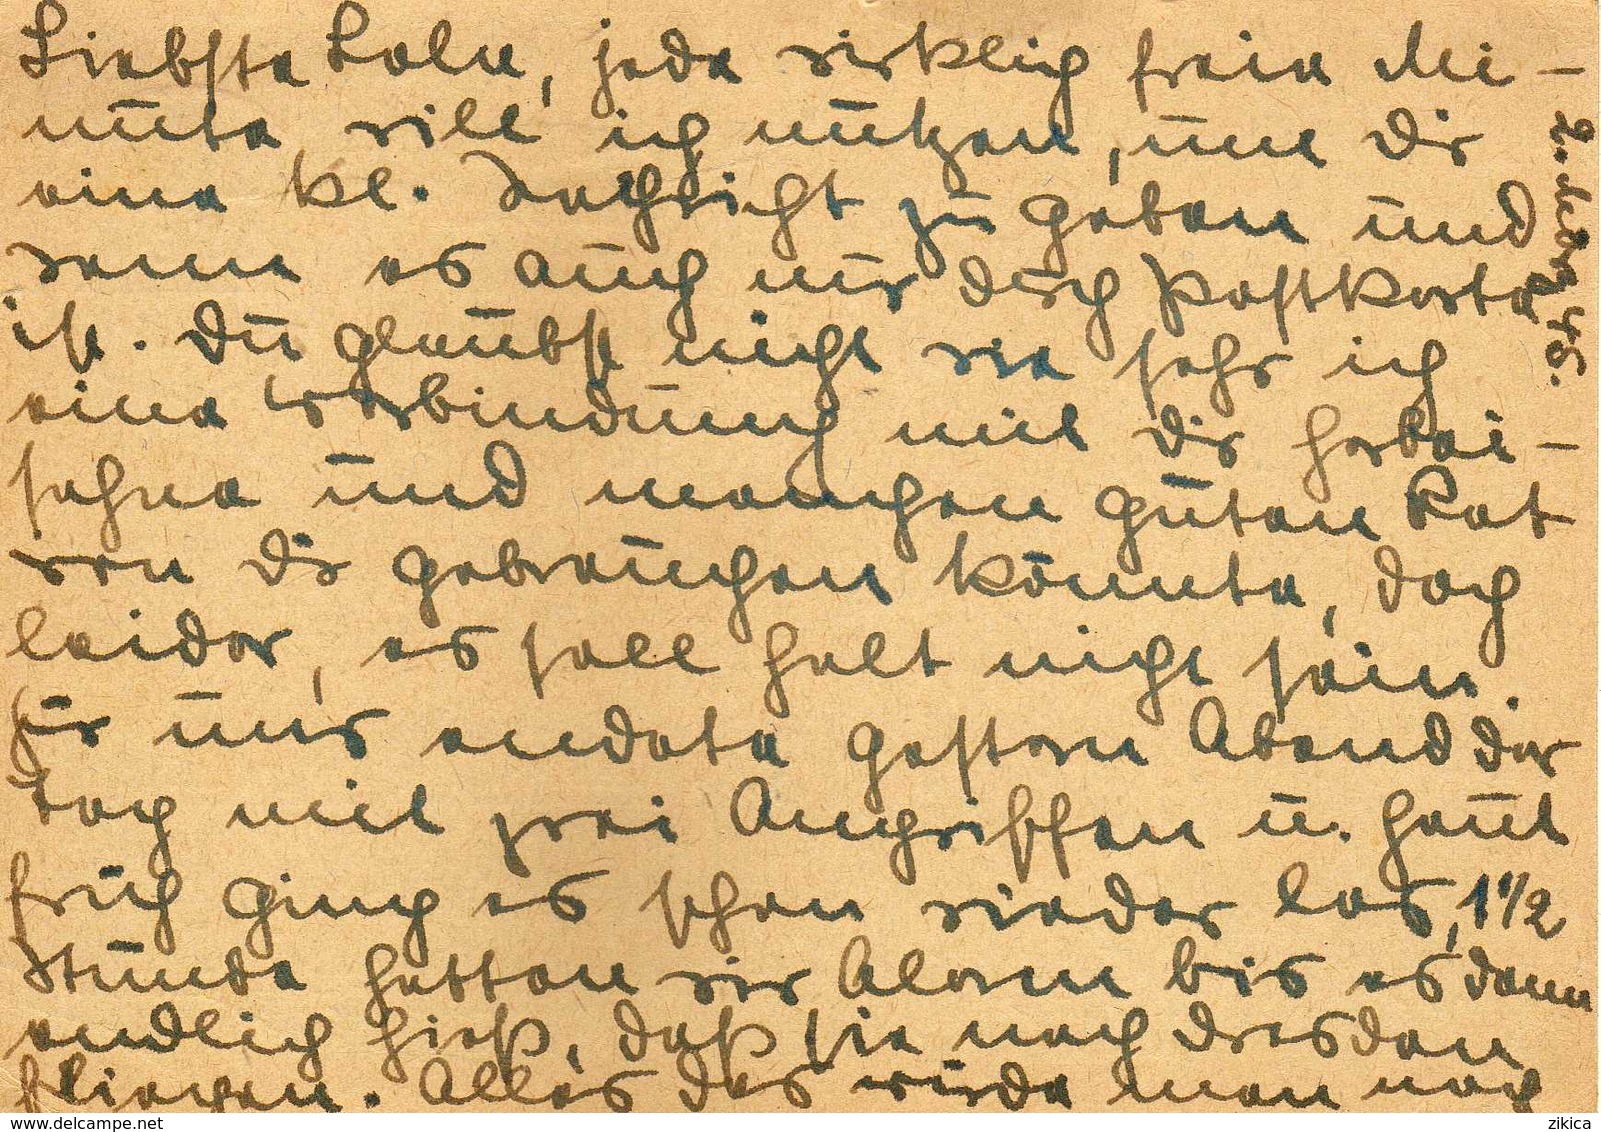 Liebste Lola, jede wirklich freie Mi-
nute will ich nützen, um Dir
eine kl. Nachricht zu geben und
wenn es auch nur durch Postkarte
ist. Du glaubst nicht wie sehr ich
eine Verbindung mit Dir herbei-
sehne und manchen guten Rat
von Dir gebrauchen könnte, doch
leider, es soll halt nicht sein.
Für uns endete gestern Abend der
Tag mit zwei Angriffen u. heut
früh ging es schon wieder los, 1 1/2
Stunde hatten wir Alarm bis es dann
endlich hieß, daß sie nach Dresden
fliegen. Alles das würde man noch
2. März 45.
zikica